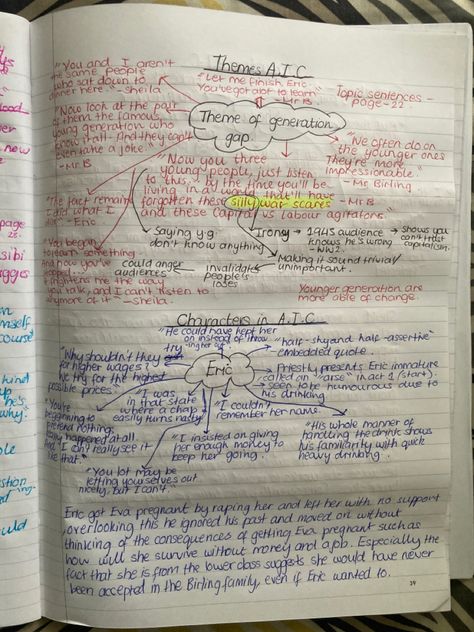 Themes A.I.C
"You and I aren't
the same people
who sat down to
dinner here" - Sheila
"Let me finish, Eric
You've got a lot to learn"
- Mr B
Topic sentences -
page - 22
Theme of generation
gap
"Now look at the pair
of them the famous
young generation who
know it all. And they can't
even take a joke." - Mr B
"We often do on
the younger ones
They're more
impressionable."
- Mr Birling
"Now you three
young people, just listen
to this, by the time you'll be
living in a world that'll have
forgotten these silly war scares - Mr B
and these Capital vs Labour agitators."
"The fact remains
I did what I
did" - Eric
Saying y.g
don't know anything
Irony → 1945 audience
knows he's wrong
- WW2.
→ shows you
can't trust
capitalism.
Making it sound trivial/
unimportant.
could anger
audiences
invalidates
people's
loses
"You began
to learn something
And now you've
stopped
frightens me the way
you talk, and I can't listen to
anymore of it - Sheila.
Younger generation
are more able of change.
Characters in A.I.C
"He could have kept her
on instead of throwing her out"
"half-shy and half-assertive"
embedded quote.
Eric
"Why shouldn't they try
for higher wages?
We try for the highest
possible prices."
Priestly presents Eric immature
called an "arse" in act 1 (start)
→ seen to be humourous due to
his drinking
"You're
beginning to
pretend nothing
really happened at all
And I can't really see it
like that."
"I was
in that state
where a chap
easily turns nasty"
"I couldn't
remember her name.
"I insisted on giving
her enough money to
keep her going.
"His whole manner of
handling the drink shows
his familiarity with quick
heavy drinking.
"You lot may be
letting yourselves out
nicely, but I can't."
Eric got Eva pregnant by raping her and left her with no support
overlooking this he ignored his past and moved on without
thinking of the consequences of getting Eva pregnant such as
how will she survive without money and a job. Especially the
fact that she is from the lower class suggests she would have never
been accepted in the Birling family, even if Eric wanted to.